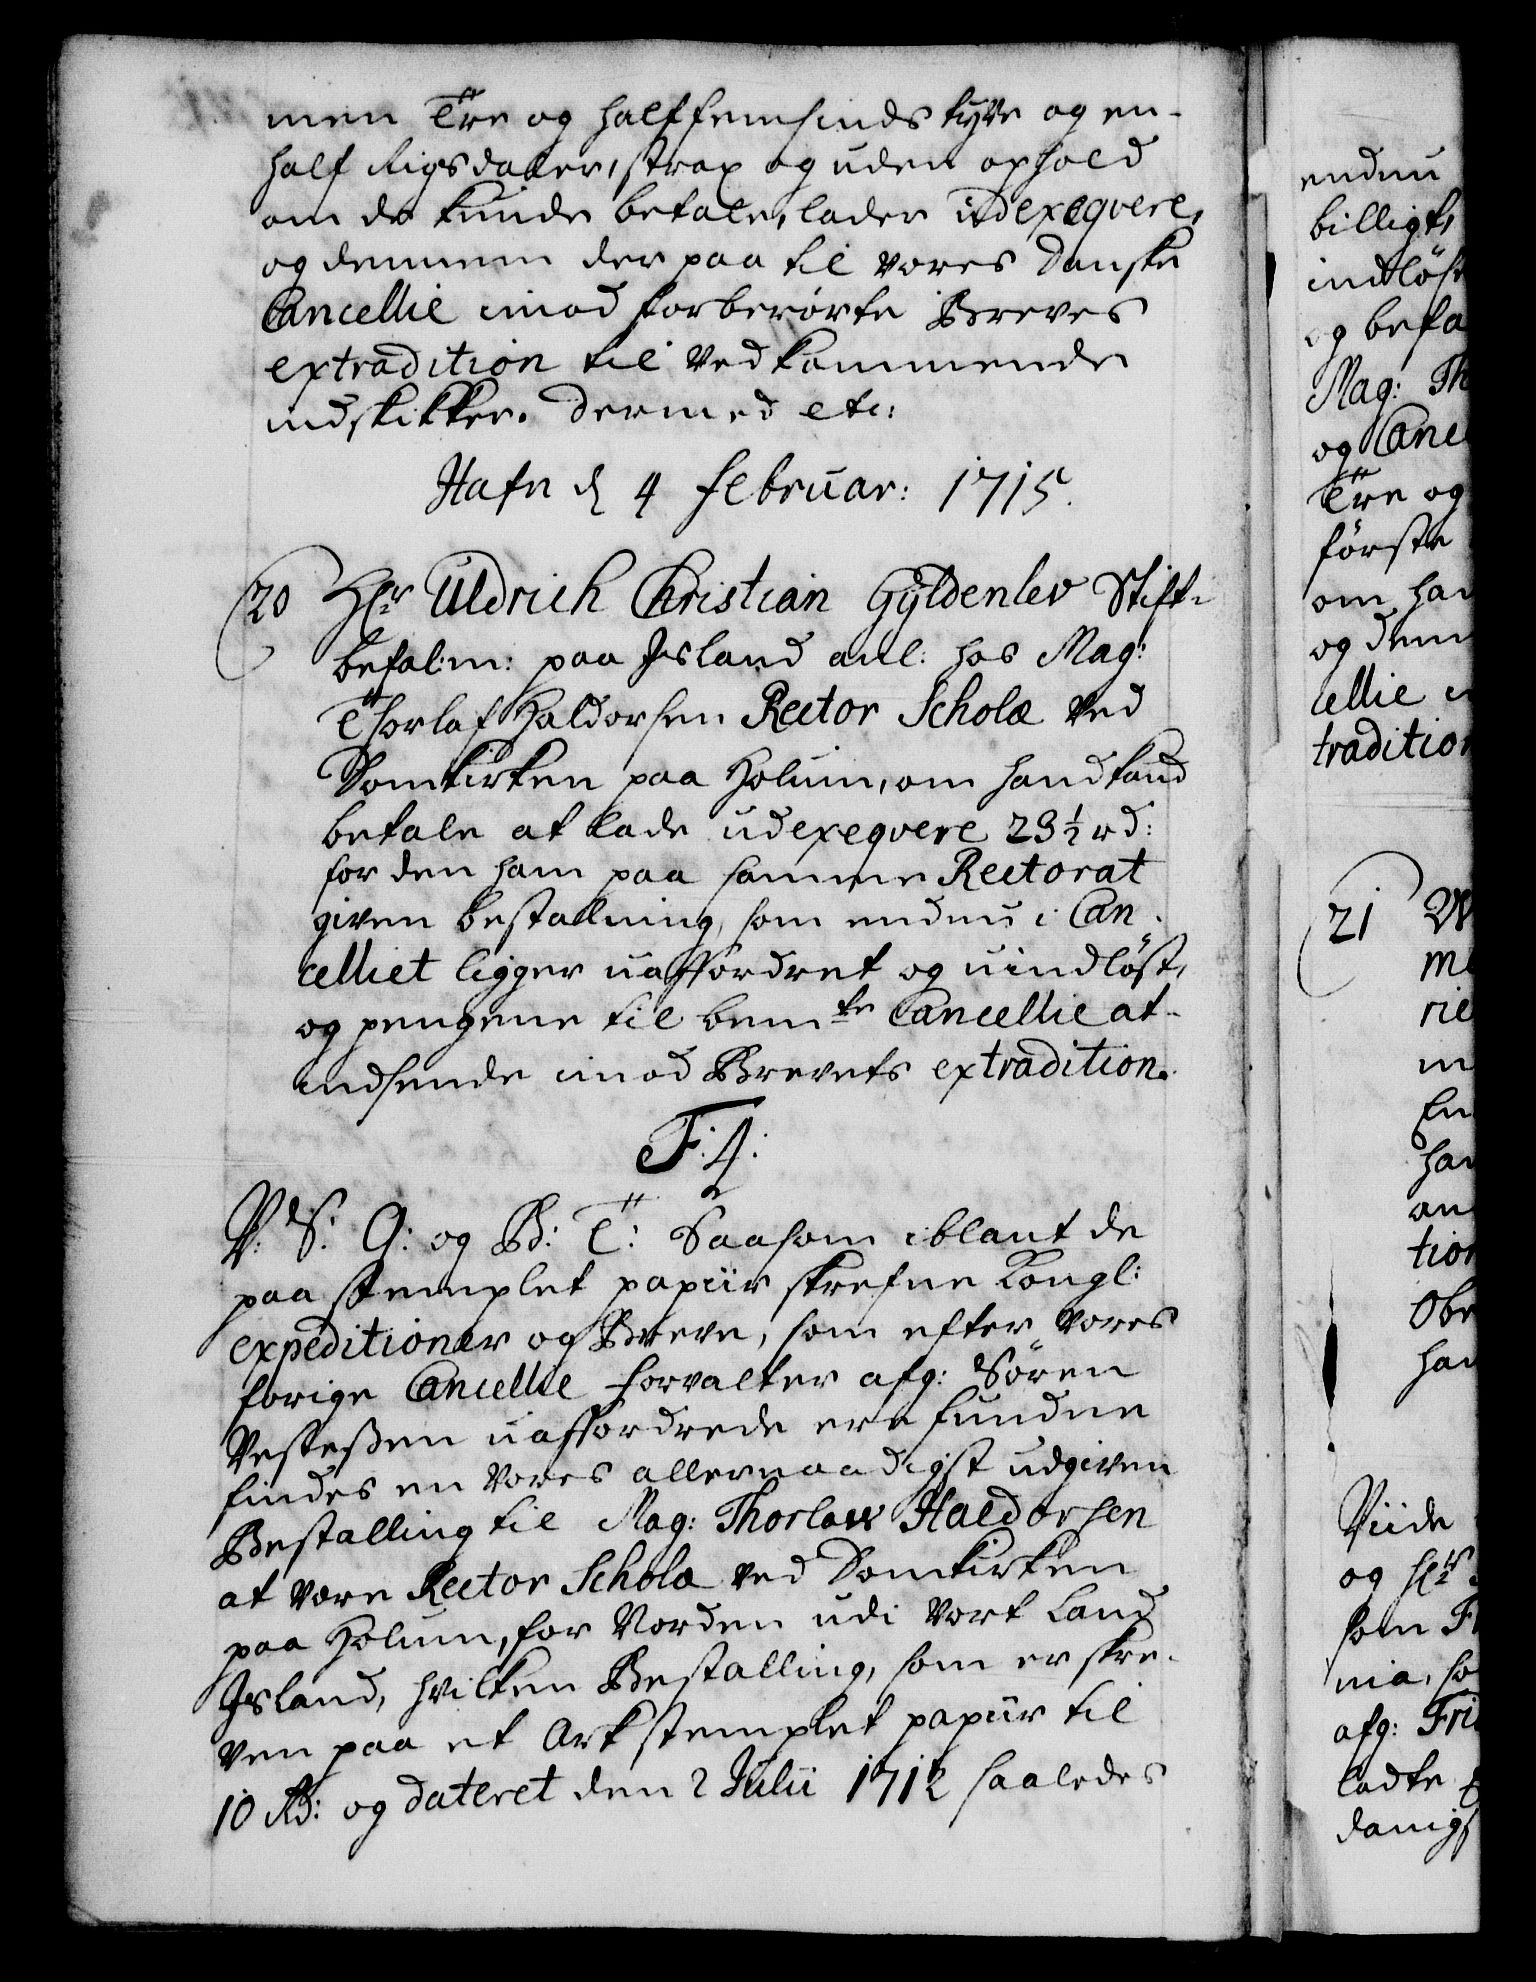 men Tre og halffemsinds tyve og en-
half Rigsdaler, strax og uden ophold
om de kunde betale, lader udexeqvere,
og dennem der paa til vores Danske
Cancellie imod forberørte Breves
extradition til Vedkommende
indskikker. Dermed etc:
Hafn d 4 Februar: 1715.
20 Hr Uldrich Christian Gÿldenlev Stift-
befal:m: paa Jsland anl: hos Mag:
Thorlaf Haldorsen Rector Scholæ ved
Domkirken paa Holum, om hand kand
betale at lade udexeqvere 23½ rd:
for den ham paa samme Rectorat
given bestalning, som endnu i Can-
celliet ligger uaffordret og uindløst,
og pengene til bemte Cancellie at-
indsende imod Brevets extradition.
F: 4:
V: S: G: og B: T: Saasom iblant de
paa stemplet papiir skrefne Kongl:
expeditioner og Breve, som efter vores
forige Cancellie forvalter afg: Sören
Vesteßen uaffordrede ere fundne
findes en vores allernaadigst udgiven
Bestalling til Mag: Thorlav Haldorsen
at være Rector Scholæ ved Domkirken
paa Holum, for Norden udi vort Land
Jsland, hvilken Bestalling, som er skre-
ven paa et Ark stemplet papiir til
10 Rd: og dateret den 2 Julii 1712 saaledes
endnu
billigt,
indløse
og befa
Mag: Th
og Canc
Tre og
første
om han
og dem
cellie
tradition
21
me
rie
En
han
an
tion
Obe
han
Viide
og Hr
som F
nia, so
afg: Fri
ladte
danigs